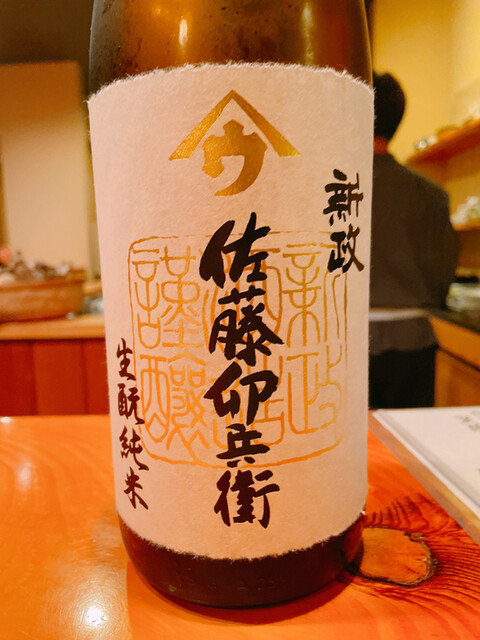 ウ
新政
佐藤卯兵衛
生酛純米
謹醸